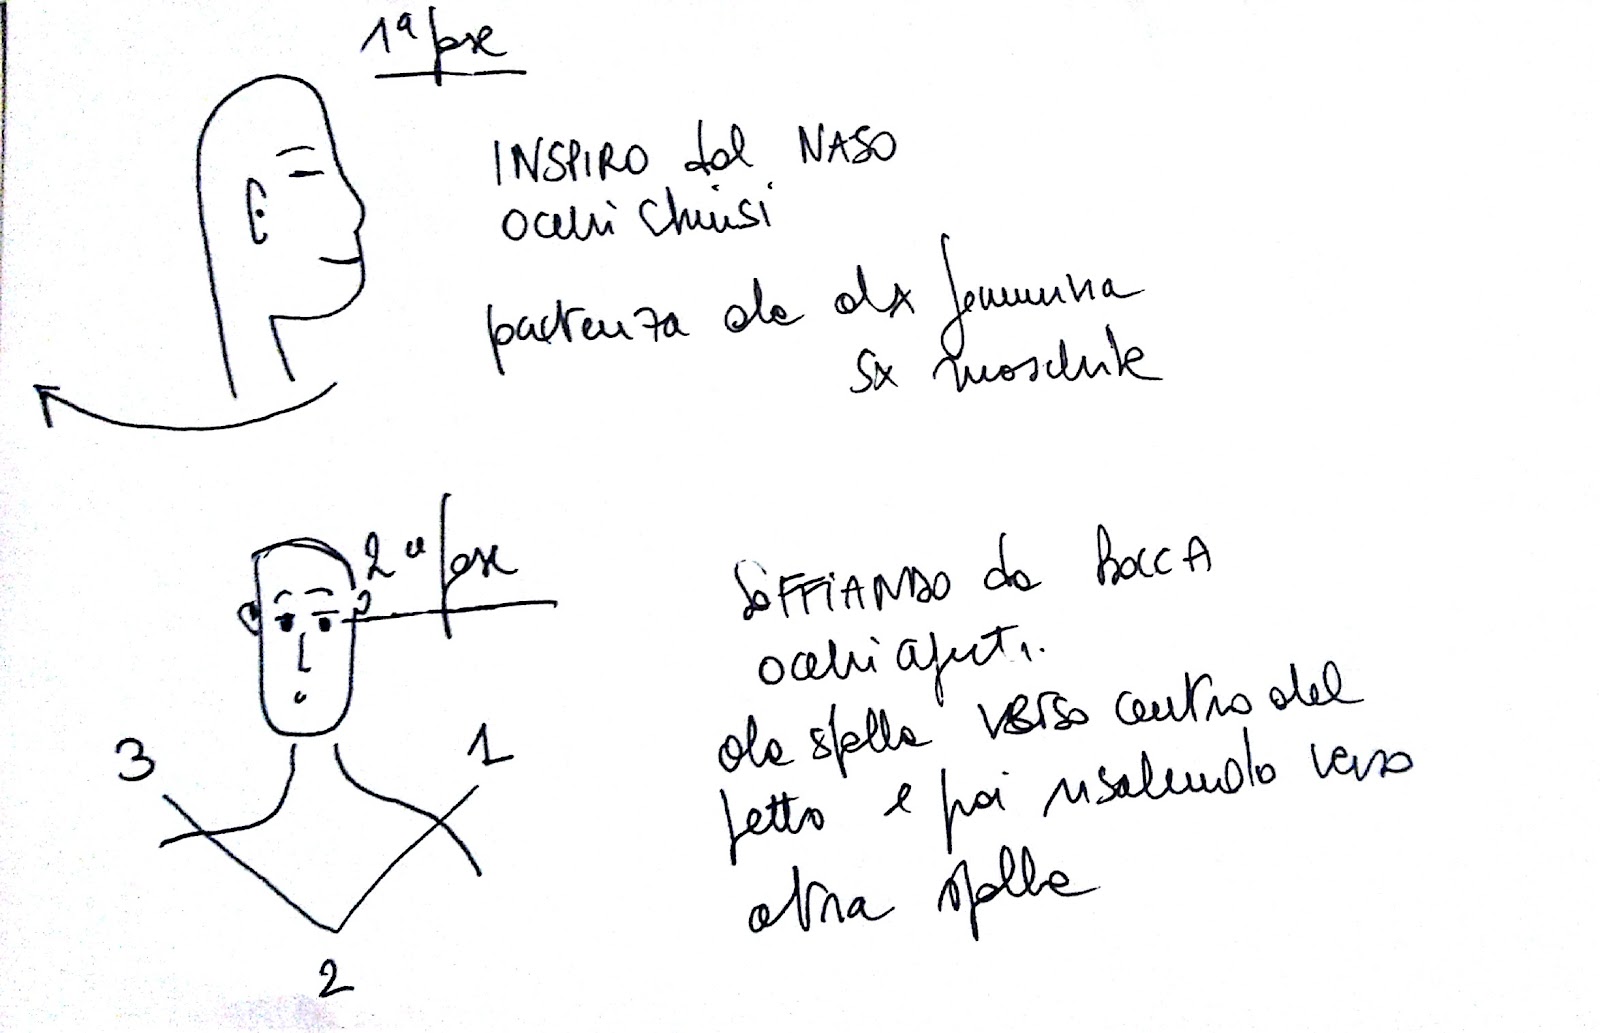 1ª fase
INSPIRO dal NASO
occhi chiusi
partenza da dx femmina
sx maschile
2ª fase
SOFFIANDO da BOCCA
occhi aperti.
da spalla verso centro del
petto e poi risalendo verso
altra spalla
3
1
2